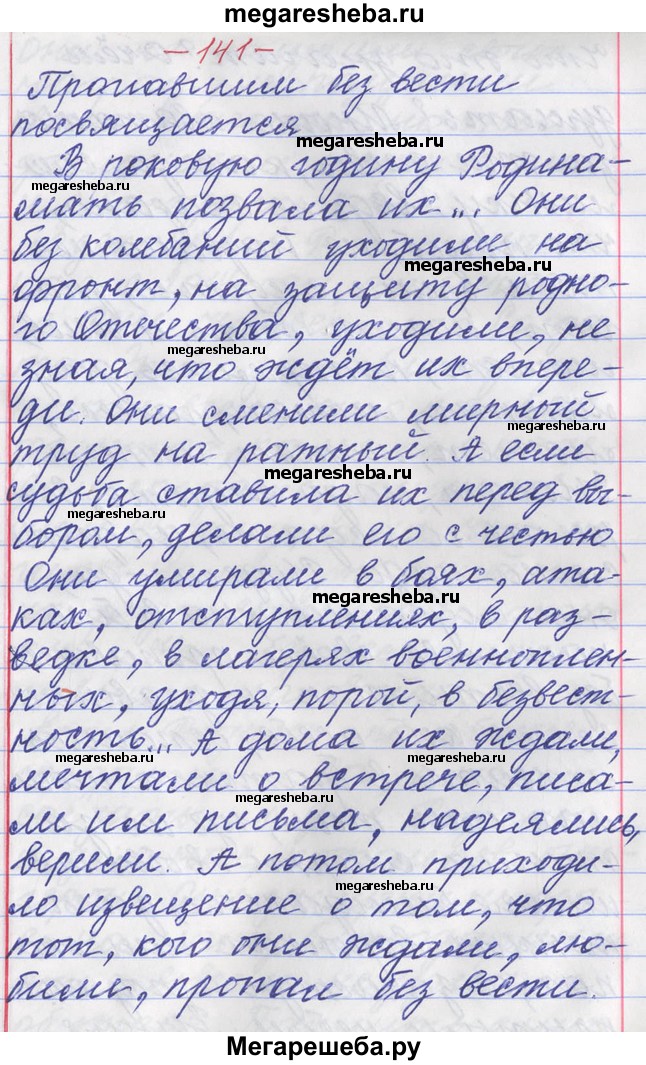 megaresheba.ru
- 141 -
Пропавшим без вести
посвящается
megaresheba.ru
В роковую годину Родина-
megaresheba.ru
мать позвала их... Они
без колебаний уходили на
megaresheba.ru
фронт, на защиту родно-
го Отечества, уходили, не
megaresheba.ru
зная, что ждёт их впере-
ди. Они сменили мирный
megaresheba.ru
труд на ратный. А если
megaresheba.ru
судьба ставила их перед вы-
megaresheba.ru
бором, делали его с честью
Они умирали в боях, ата-
megaresheba.ru
ках, отступлениях, в раз-
ведке, в лагерях военноплен-
ных, уходя, порой, в безвест-
ность... А дома их ждали,
megaresheba.ru
мечтали о встрече, писа-
megaresheba.ru
ли им письма, надеялись,
верили. А потом приходи-
megaresheba.ru
ло извещение о том, что
тот, кого они ждали, лю-
били, пропал без вести.
Мегарешеба.ру